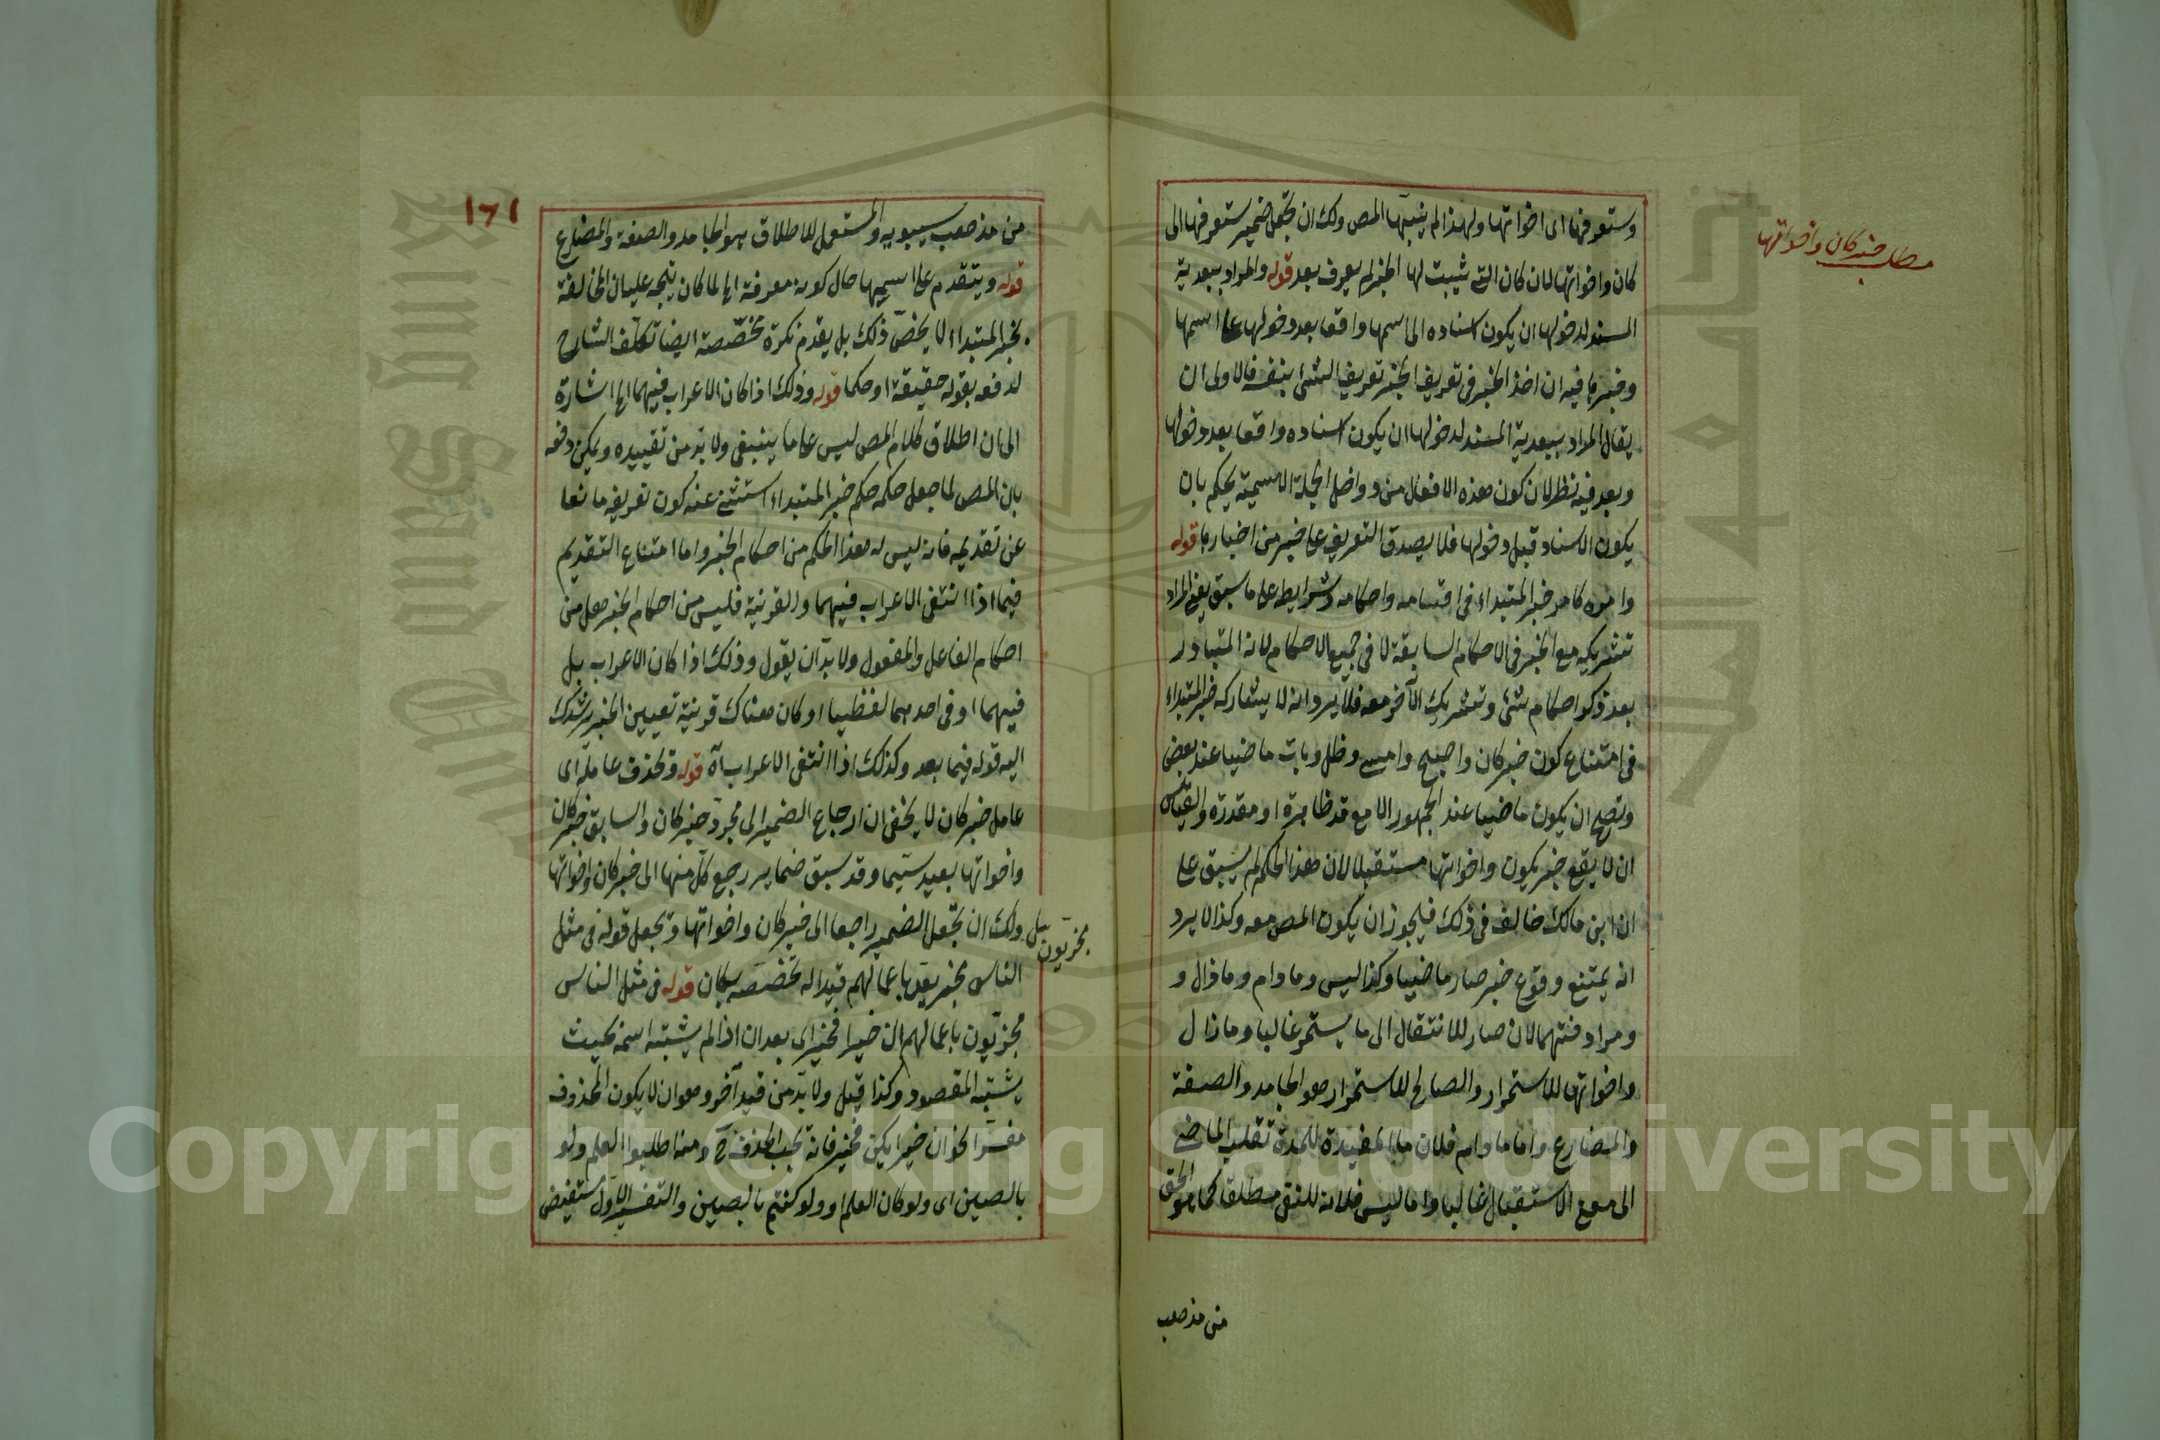 مطلب خبر كان واخواتها
وستعرفها اى اخواتها ولهذا لم ينبهها المص ولك ان تجعل ضمير ستعرفها الى
كان واخواتها لان كان التى ثبيت لها الخبر لم يعرف بعد قوله والمراد ببعدية
المسند لدخولها ان يكون اسناده الى اسمها واقعا بعد دخولها على اسمها
وخبرها فيه ان اخذ الخبر فى تعريف الخبر تعريف الشئ بنفسه فالاولى ان
يقال المراد ببعدية المسند لدخولها ان يكون اسناده واقعا بعد دخولها
وبعد فيه نظر لان كون هذه الافعال من دواخل الجملة الاسمية يحكم بان
يكون الاسناد قبل دخولها فلا يصدق التعريف على خبر من اخبارها قوله
وامره كامر خبر المبتداء فى اقسامه واحكامه وشرايطه على ما سبق يعنى المراد
تشريكه مع الخبر فى الاحكام السابقة لا فى جميع الاحكام لانه المتبادر
بعد ذكر احكام شئ وتشريك الآخر معه فلا يرد انه لا يشاركه خبر المبتداء
فى امتناع كون خبر كان واصبح وامسى وظل وبات ماضيا عند بعض
ويصح ان يكون ماضيا عند الجمهور الا مع قد ظاهرة او مقدرة والقياس
ان لا يقع خبر يكون واخواتها مستقبلا لان هذا الحكم لم يسبق على
ان ابن مالك خالف فى ذلك فيجوز ان يكون المص معه وكذا لا يرد
انه يمتنع وقوع خبر صار ماضيا وكذا ليس وما دام وما زال و
ومرادفتهما لان صار للانتقال الى ما يستمر غالبا وما زال
واخواتها للاستمرار والصالح للاستمرار هو الجامد والصفة
والمضارع واما ما دام فلان ما المفيدة للمدة تقلب الماضى
الى معنى الاستقبال غالبا واما ليس فلانه للنفى مطلقا كما هو الحق
من مذهب
١٧١
من مذهب سيبويه والمستعمل للاطلاق هو الجامد والصفة والمضارع
قوله ويتقدم على اسمها حال كونه معرفة الى لما كان يتجه عليه ان المخالفة
بخبر المبتداء لا يخص ذلك بل يقدم نكرة مخصصة ايضا تكلف الشارح
لدفعه بقوله حقيقة او حكما قوله وذلك اذا كان الاعراب فيهما الى اشارة
الى ان اطلاق كلام المص ليس على ما ينبغى ولا بد من تقييده ويمكن دفعه
بان المص لما جعل حكمه حكم خبر المبتداء استثنى عنه كون تعريفه مانعا
عن تقديمه فانه ليس له هذا الحكم من احكام الخبر واما امتناع التقديم
فيما اذا انتفى الاعراب فيهما والقرينة فليس من احكام الخبر هل من
احكام الفاعل والمفعول ولا بد ان يقول وذلك اذا كان الاعراب بل
فيهما او فى احدهما لفظيا او كان هناك قرينة تعيين الخبر يرشدك
اليه قوله فيما بعد وكذلك اذا انتفى الاعراب آه قوله وقد يحذف عامله اى
عامل خبر كان لا يخفى ان ارجاع الضمير الى مجرد خبر كان والسابق خبر كان
واخواتها بعيد سيما وقد سبق ضماير رجع كل منها الى خبر كان واخواتها
ولك ان تجعل الضمير راجعا الى خبر كان واخواتها وتجعل قوله فى مثل
مجزيون
الناس مجزيون باعمالهم قيدا له تخصصه بكان قوله فى مثل الناس
مجزيون باعمالهم ان خيرا فخير اى بعد ان اذا لم يشتبه اسمه بحيث
يشتبه المقصود وكذا قيل ولا بد من قيد آخر وهو ان لا يكون المحذوف
مفسرا نحو ان خيرا يكن فخير فانه يجب الحذف ح ومنه اطلبوا العلم ولو
بالصين اى ولو كان العلم او ولو كنتم بالصين والتفسير الاول مستفيض